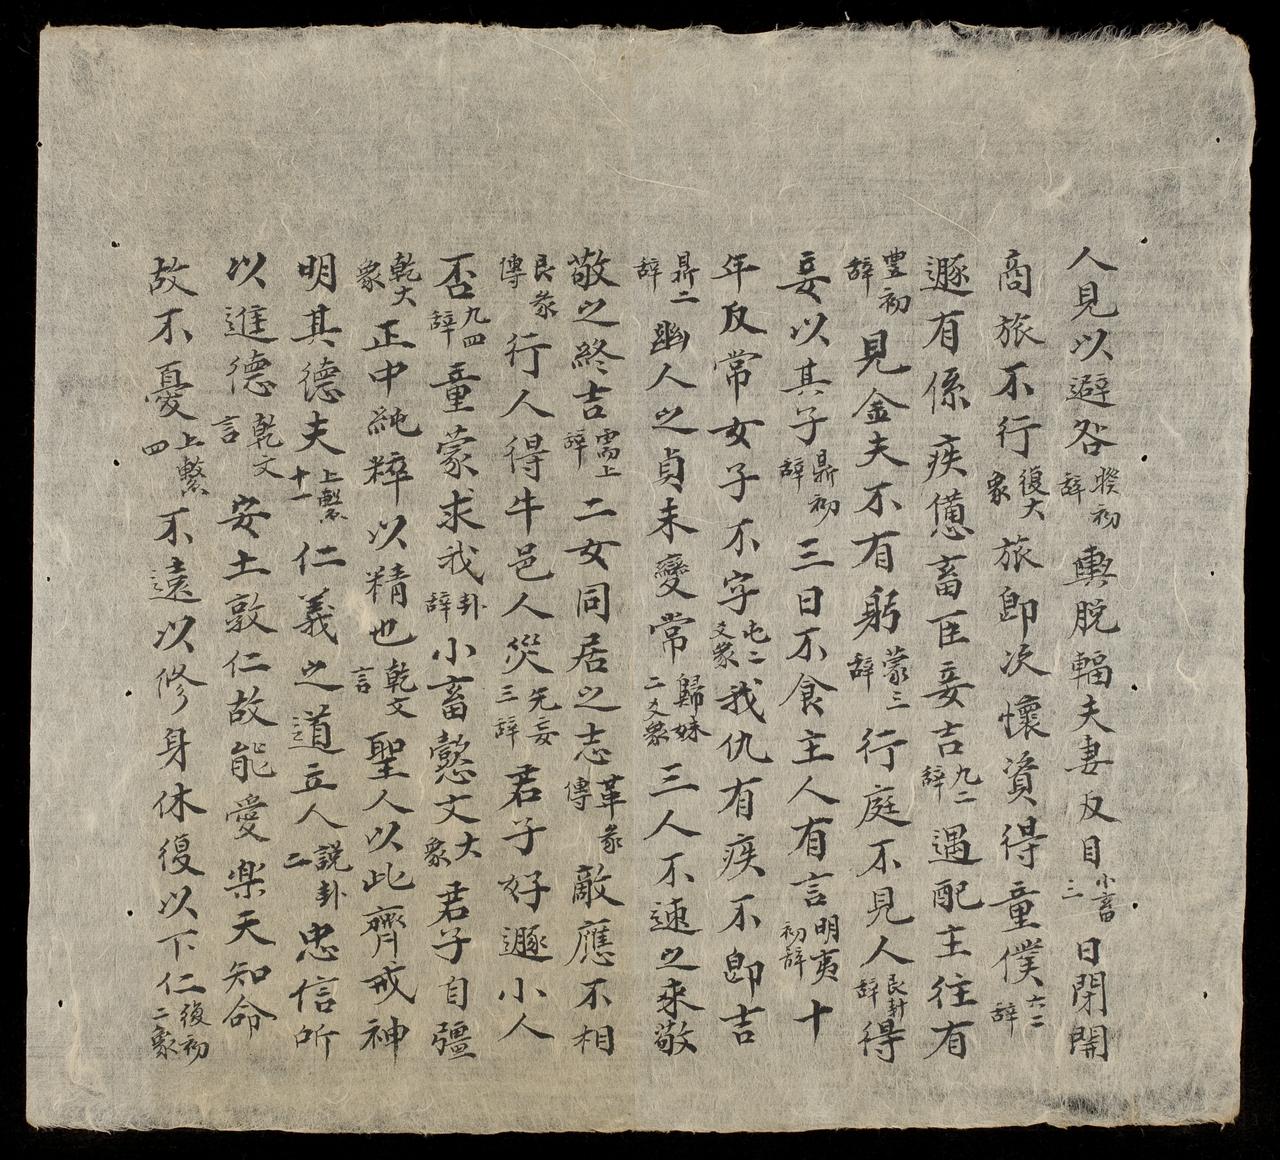 人見以避咎睽初辞輿脱輻夫妻反目小畜三日閉關
商旅不行復大象旅即次懷資得童僕六二辞
遯有係疾憊畜臣妾吉九二辞遇配主往有
豊初辞見金夫不有躬蒙三辞行庭不見人艮卦辞得
妾以其子鼎初辞三日不食主人有言明夷初辞十
年反常女子不字屯二爻象我仇有疾不即吉
鼎二辞幽人之貞未變常歸妹二爻象三人不速之来敬
敬之終吉需上辞二女同居之志革彖傳敵應不相
艮彖傳行人得牛邑人災无妄三辞君子好遯小人
否九四辞童蒙求我卦辞小畜懿文大象君子自彊
乾大象正中純粹以精也乾文言聖人以此齊戒神
明其德夫上繫十一仁義之道立人說卦二忠信所
以進德乾文言安土敦仁故能愛楽天知命
故不憂上繫四不遠以修身休復以下仁復初二象